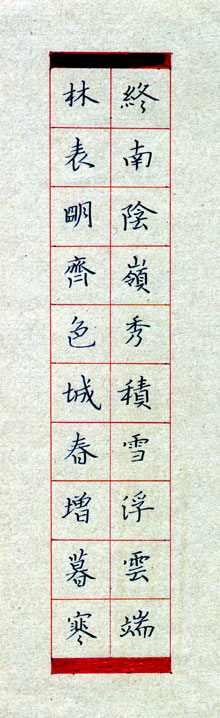 終南陰嶺秀積雪浮雲端
林表眀齊色城春增暮寒